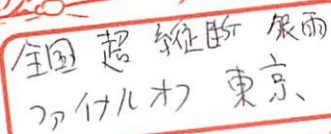 全国 超 縦断 銀雨
ファイナルオフ 東京